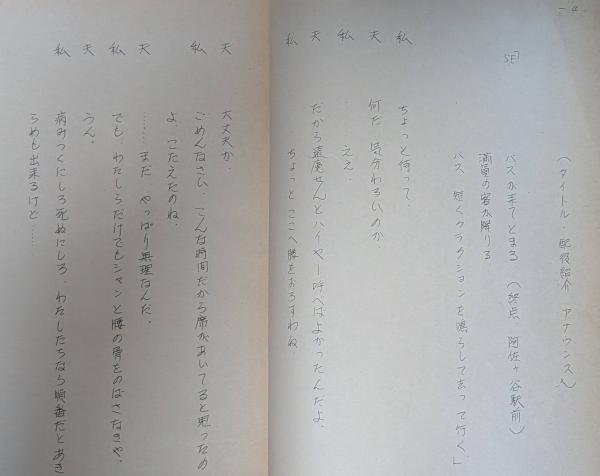 -4-
(タイトル・配役紹介 アナウンス)
SE「
バスが来てとまる (終点 阿佐ヶ谷駅前)
満員の客が降りる
バス、短くクラクションを鳴らして去って行く」
私 ちょっと待って.
夫 何だ 気分わるいのか.
私 ……ええ.
夫 だから遠慮せんとハイヤー呼べばよかったんだよ.
私 ちょっと ここへ腰をおろすわね
夫 大丈夫か.
私 ごめんなさい. こんな時間だから席があいてると思ったの
よ. こたえたのね.
夫 …… まだ やっぱり無理なんだ.
私 でも. わたしらだけでもシャンと腰の骨をのばさなきゃ.
夫 うん.
私 病みつくにしろ死ぬにしろ. わたしたちなら順番だとあき
らめも出来るけど……